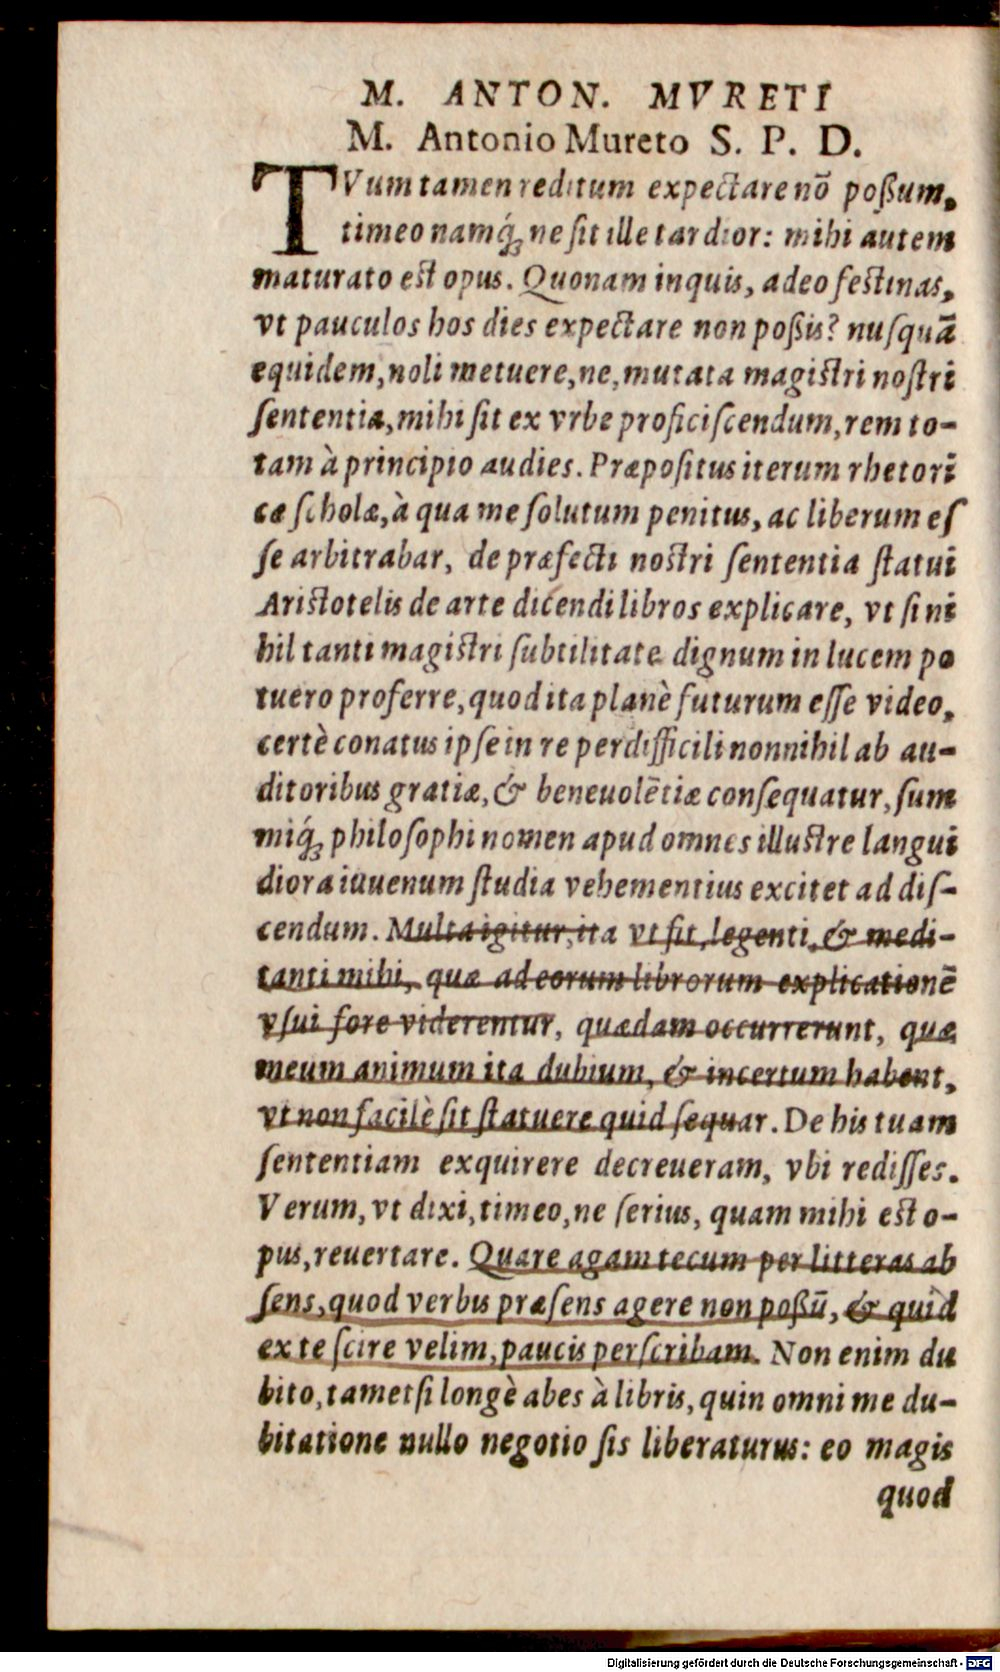 M. ANTON. MVRETI
M. Antonio Mureto S. P. D.
TVum tamen reditum expectare nõ poßum,
timeo namq́; ne ſit ille tardior: mihi autem
maturato est opus. Quonam inquis, adeo festinas,
vt pauculos hos dies expectare non poßis? nuſquã
equidem, noli metuere, ne, mutata magistri noſtri
ſententia, mihi ſit ex vrbe proficiſcendum, rem to-
tam à principio audies. Præpoſitus iterum rhetori
cæ ſcholæ, à qua me ſolutum penitus, ac liberum eſ
ſe arbitrabar, de præfecti nostri ſententia ſtatui
Aristotelis de arte dicendi libros explicare, vt ſi ni
hil tanti magistri ſubtilitate dignum in lucem po
tuero proferre, quod ita planè futurum eſſe video,
certè conatus ipſe in re perdifficili nonnihil ab au-
ditoribus gratiæ, & beneuolẽtiæ conſequatur, ſum
miq́; philoſophi nomen apud omnes illustre langui
diora iuuenum ſtudia vehementius excitet ad diſ-
cendum. Multa igitur, ita vt fit, legenti, & medi-
tanti mihi, quæ ad eorum librorum explicationẽ
vſui fore viderentur, quædam occurrerunt, quæ
meum animum ita dubium, & incertum habent,
vt non facilè ſit ſtatuere quid ſequar. De his tuam
ſententiam exquirere decreueram, vbi rediſſes.
Verum, vt dixi, timeo, ne ſerius, quam mihi est o-
pus, reuertare. Quare agam tecum per litteras ab
ſens, quod verbis præſens agere non poßũ, & quid
ex te ſcire velim, paucis perſcribam. Non enim du
bito, tametſi longè abes à libris, quin omni me du-
bitatione nullo negotio ſis liberaturus: eo magis
quod
Digitalisierung gefördert durch die Deutsche Forschungsgemeinschaft - DFG